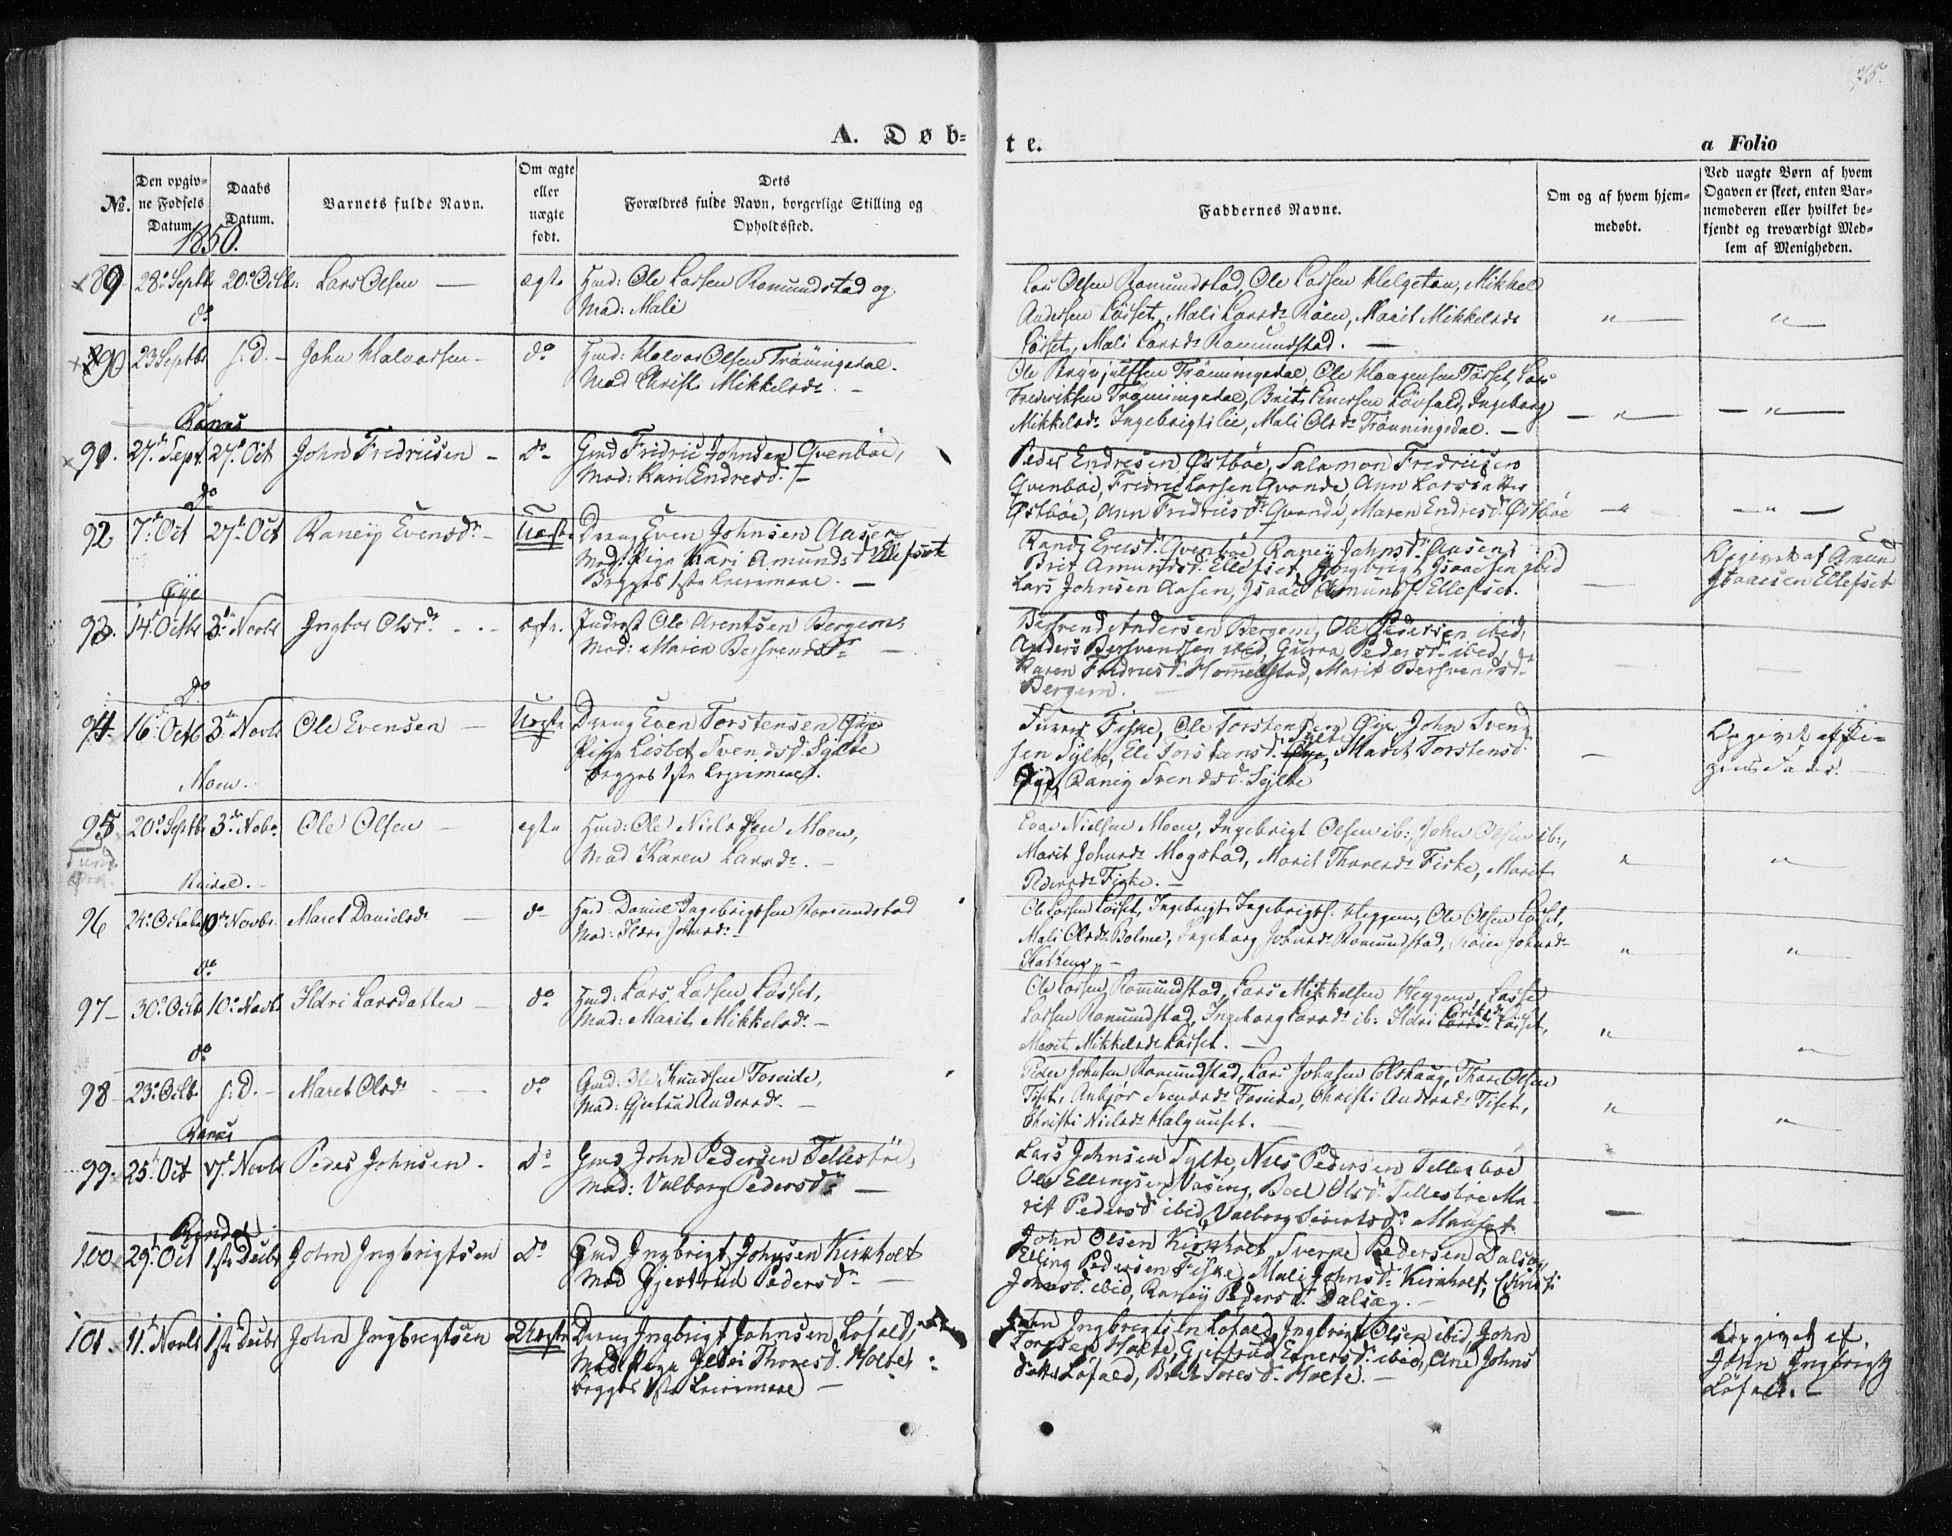 75.
A. Døb-
te.
a Folio
No.
Den opgiv-
ne Fødsels
Datum.
Daabs
Datum.
Barnets fulde Navn.
Om ægte
eller
uægte
født.
Dets
Forældres fulde Navn, borgerlige Stilling og
Opholdssted.
Faddernes Navne.
Om og af hvem hjem-
medøbt.
Ved uægte Børn af hvem
Opgaven er skeet, enten Bar-
nemoderen eller hvilket be-
kjendt og troværdigt Med-
lem af Menigheden.
1850.
89 28de Septb 20de Octb: Lars Olsen — ægte Gmd: Ole Larsen Romundstad og
Mad: Mali
Lars Olsen Romundstad, Ole Larsen Helgetun, Mikkel
Andersen Løset, Mali Larsdr Røen, Marit Mikkelsdr
Løset, Mali Larsdr Romundstad. —
do
90 23 Septbr s. D. — John Halvorsen — do Gmd: Halvor Olsen Trønningsdal.
Mad Christi Mikkelsdr. —
Ole Brynjulfsen Trønningsdal, Ole Haagensen Tørset, Lars
Frederiksen Trønningsdal, Brit Einersen Løvfald, Ingeborg
Mikkelsdr Ingebrigtslie, Mali Olsdr Trønningsdal. —
Ranes
91. 27de Sept. 27de Oct John Fredricsen — do Gmd Fridric Johnsen Qvenbøe,
Mad: Kari Endresd. —
Peder Endresen Østbøe, Salamon Fredricsen
Qvenbøe, Fridric Larsen Qvande, Ann Larsdatter
Østbøe, Ann Fredricsdr Qvande, Maren Endresd. Østbøe
do
92 7de Oct 27de Oct Raneij Evensdr — Uægte Dreng Even Johnsen Aasen
Mad: Pige Kari Amundsd Ellefset
Begges 1ste Leiermaal. —
Brit Amundsd. Ellefset, Ingbrigt Isaacsen ibid
Lars Johnsen Aasen, Isaac Amunds. Ellefset.
Opgivet af Amund
Isaacsen Ellefset
Øye
93. 14de Octbr 3de Novbr Ingbor Olsdr. ægte. Inderst Ole Arentsen Bergem,
Mad: Maria Bersvendsdr —
Bersvend Andersen Bergem, Ole Pedersen ibid,
Anders Bersvendsen ibid, Gurra Pedersd. ibid,
Karen Fredricsd. Hommelstad, Marit Bersvendsdr
Bergem.
Do
94. 16de Octb 3de Novbr Ole Evensen — Uægte Dreng Even Torstensen Øye
Pige Lisbet Svendsd. Sylte
begges 1ste Leiermaal.
Fiske, Ole Torstensen Øye, John Svend
sen Sylte, Eli Torstensd. Sylte, Marit Torstensd
Øye, Raneij Svendsd. Sylte
Opgivet af Pi-
gens Fader.
Moen.
95 20de Septbr 3de Nobr Ole Olsen — ægte Gmd: Ole Nielssen Moen,
Mad Karen Larsdr. —
Even Nielsen Moen, Ingebrigt Olsen ib:, John Olsen ib:,
Marit Johnsdr Mogstad, Marit Tharesdr Fiske, Marit
Pedersdr Fiske. —
96 24de October 10de Novbr. Maret Danielsdr — do Gmd Daniel Ingebrigtsen Romundstad
Mad: Johnsdr —
Ole Larsen Løset, Ingebrigt Ingebrigts. Heggem, Ole Olsen Løset,
Mali Olsdr Bolme, Ingeborg Johnsdr Romundstad, Johnsdr
do
97 — 30de Octb 10de Novbr Ildri Larsdatter — do Gmd: Lars Larsen Løset,
Mad: Marit Mikkelsdr. —
Ole Larsen Romundstad, Lars Mikkelsen Heggem, Lasse
Larsen Romundstad, Ingeborg Larsdr ib: Ildri Eriksdr Løset,
Marit Mikkelsdr Løset. —
do
98 — 23de Octb s. D. — Maret Olsdr do Gmd: Ole Knudsen Foseide,
Mad: Gjertrud Andersdr. —
Peder Johnsen Romundstad, Lars Johnsen Olshaug, Thare Olsen
Tiset, Anbjør Svendsdr Foseide, Christi Andersdr Tiset,
Christi Nielsdr Halgunset. —
Ranes
99. 25de Oct 17de Novbr Peder Johnsen. do Gmd John Pedersen Tellesbøe,
Mad: Valborg Pedersdr —
Lars Johnsen Sylte, Nils Pedersen Tellesbøe
Ole Ellingsen Vaseng, Boel Olsd. Tellesbøe Ma-
rit Pedersd ibid, Valborg Sivertsdr Mauset
Rindal
100 29de Oct 1ste Decbr John Ingbrigtsen do Gmd Ingbrigt Johnsen Kirkholt
Mad Gjertrud Pedersdr —
John Olsen Kirkholt, Sverke Pedersen Dalsæg
Elling Pedersen Fiske, Mali Johnsdr Kirkholt, Christi
Jonesd. ibid, Raneij Pedersd. Dalsæg. —
101 11de Novbr 1ste Decbr John Ingbrigtsen Uægte Dreng Ingbrigt Johnsen Løfald,
Mad Pige Ildri Tharesd. Holte
begges 1ste Leiermaal —
Ingbrigtsen Løfald, Ingbrigt Olsen ibid, John
Torsen Holte, Gjertrud Einersd. ibid, Ane Johns
datter Løfald, Brit Toresd. Holte. —
Opgivet af
John Ingbrigts
Løfald. —